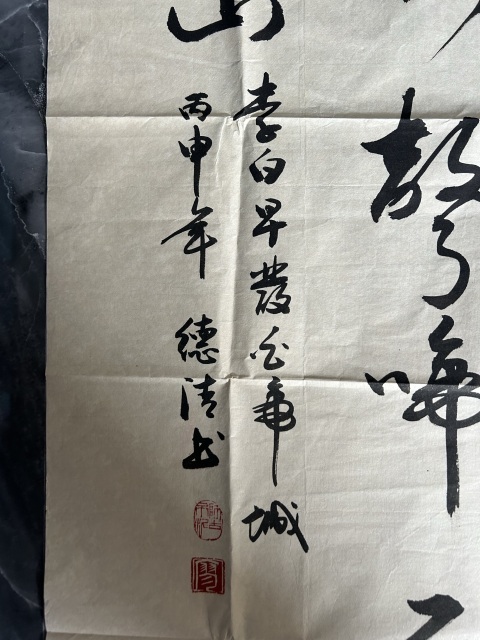 聲啼不
山
李白早發白帝城
丙申年 德清书